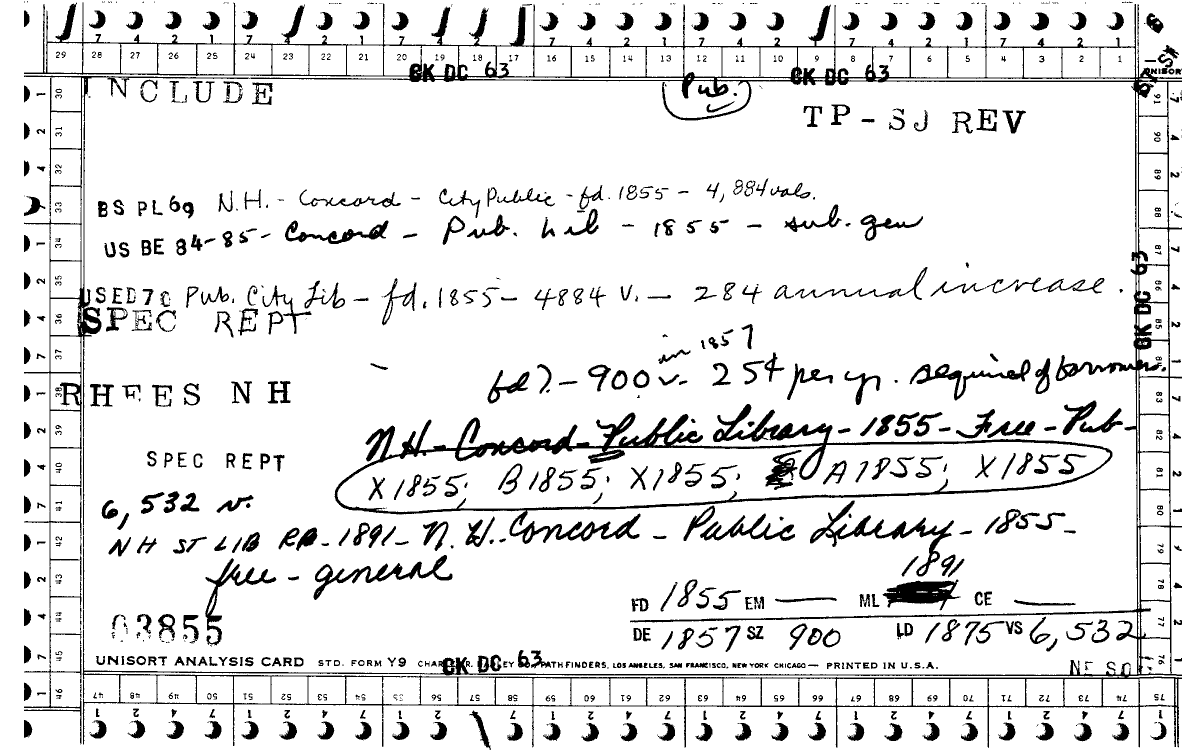 7 4 2 1 7 4 2 1 7 4 2 1 7 4 2 1 7 4 2 1 7 4 2 1 7 4 2 1
29 28 27 26 25 24 23 22 21 20 19 18 17 16 15 14 13 12 11 10 9 8 7 6 5 4 3 2 1
CK DC 63 CK DC 63
INCLUDE
Pub.
TP-SJ REV
BS PL69 N.H. - Concord - City Public - fd. 1855 - 4,884 vols.
US BE 84-85 - Concord - Pub. Lib - 1855 - sub. gen
USED70 Pub. City Lib - fd. 1855 - 4884 V. - 284 annual increase.
SPEC REPT
CK DC 63
in 1857
RHEES NH fd ?. - 900 v. 25¢ per yr. required of borrowers.
NH. - Concord - Public Library - 1855 - Free - Pub -
SPEC REPT
X1855; B1855; X1855; A1855; X1855
6,532 v.
NH ST LIB RP - 1891 - N.H. Concord - Public Library - 1855 -
free - general
1891
FD 1855 EM — ML CE —
03855
DE 1857 SZ 900 LD 1875 VS 6,532
UNISORT ANALYSIS CARD STD. FORM Y9 PATHFINDERS, LOS ANGELES, SAN FRANCISCO, NEW YORK CHICAGO — PRINTED IN U.S.A.
CK DC 63
46 47 48 49 50 51 52 53 54 55 56 57 58 59 60 61 62 63 64 65 66 67 68 69 70 71 72 73 74 75